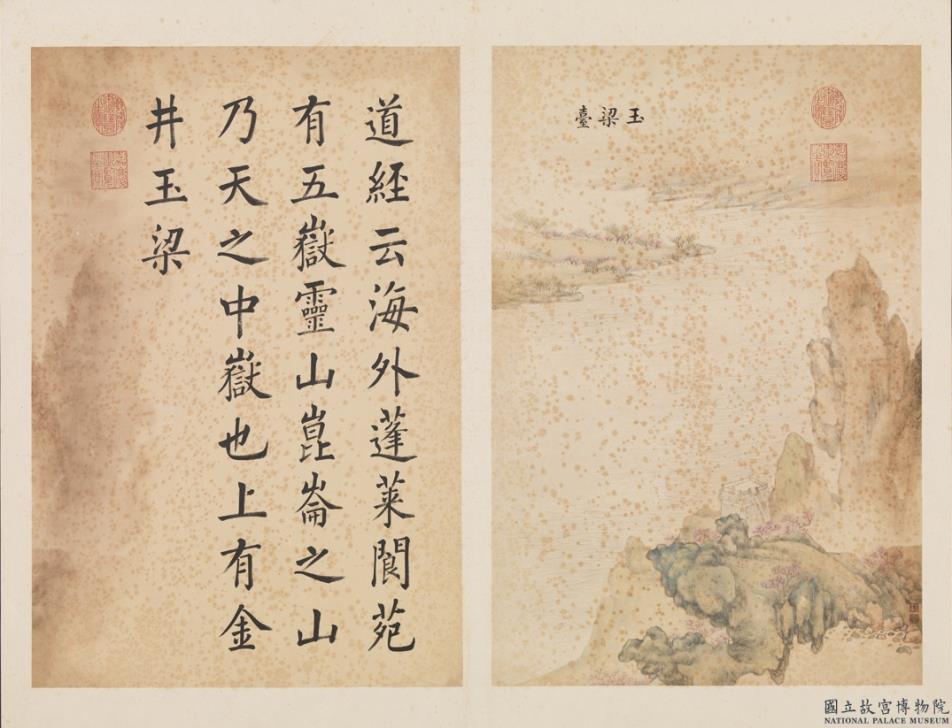 玉梁臺
道經云海外蓬萊閬苑
有五嶽靈山崑崙之山
乃天之中嶽也上有金
井玉梁
國立故宮博物院
NATIONAL PALACE MUSEUM